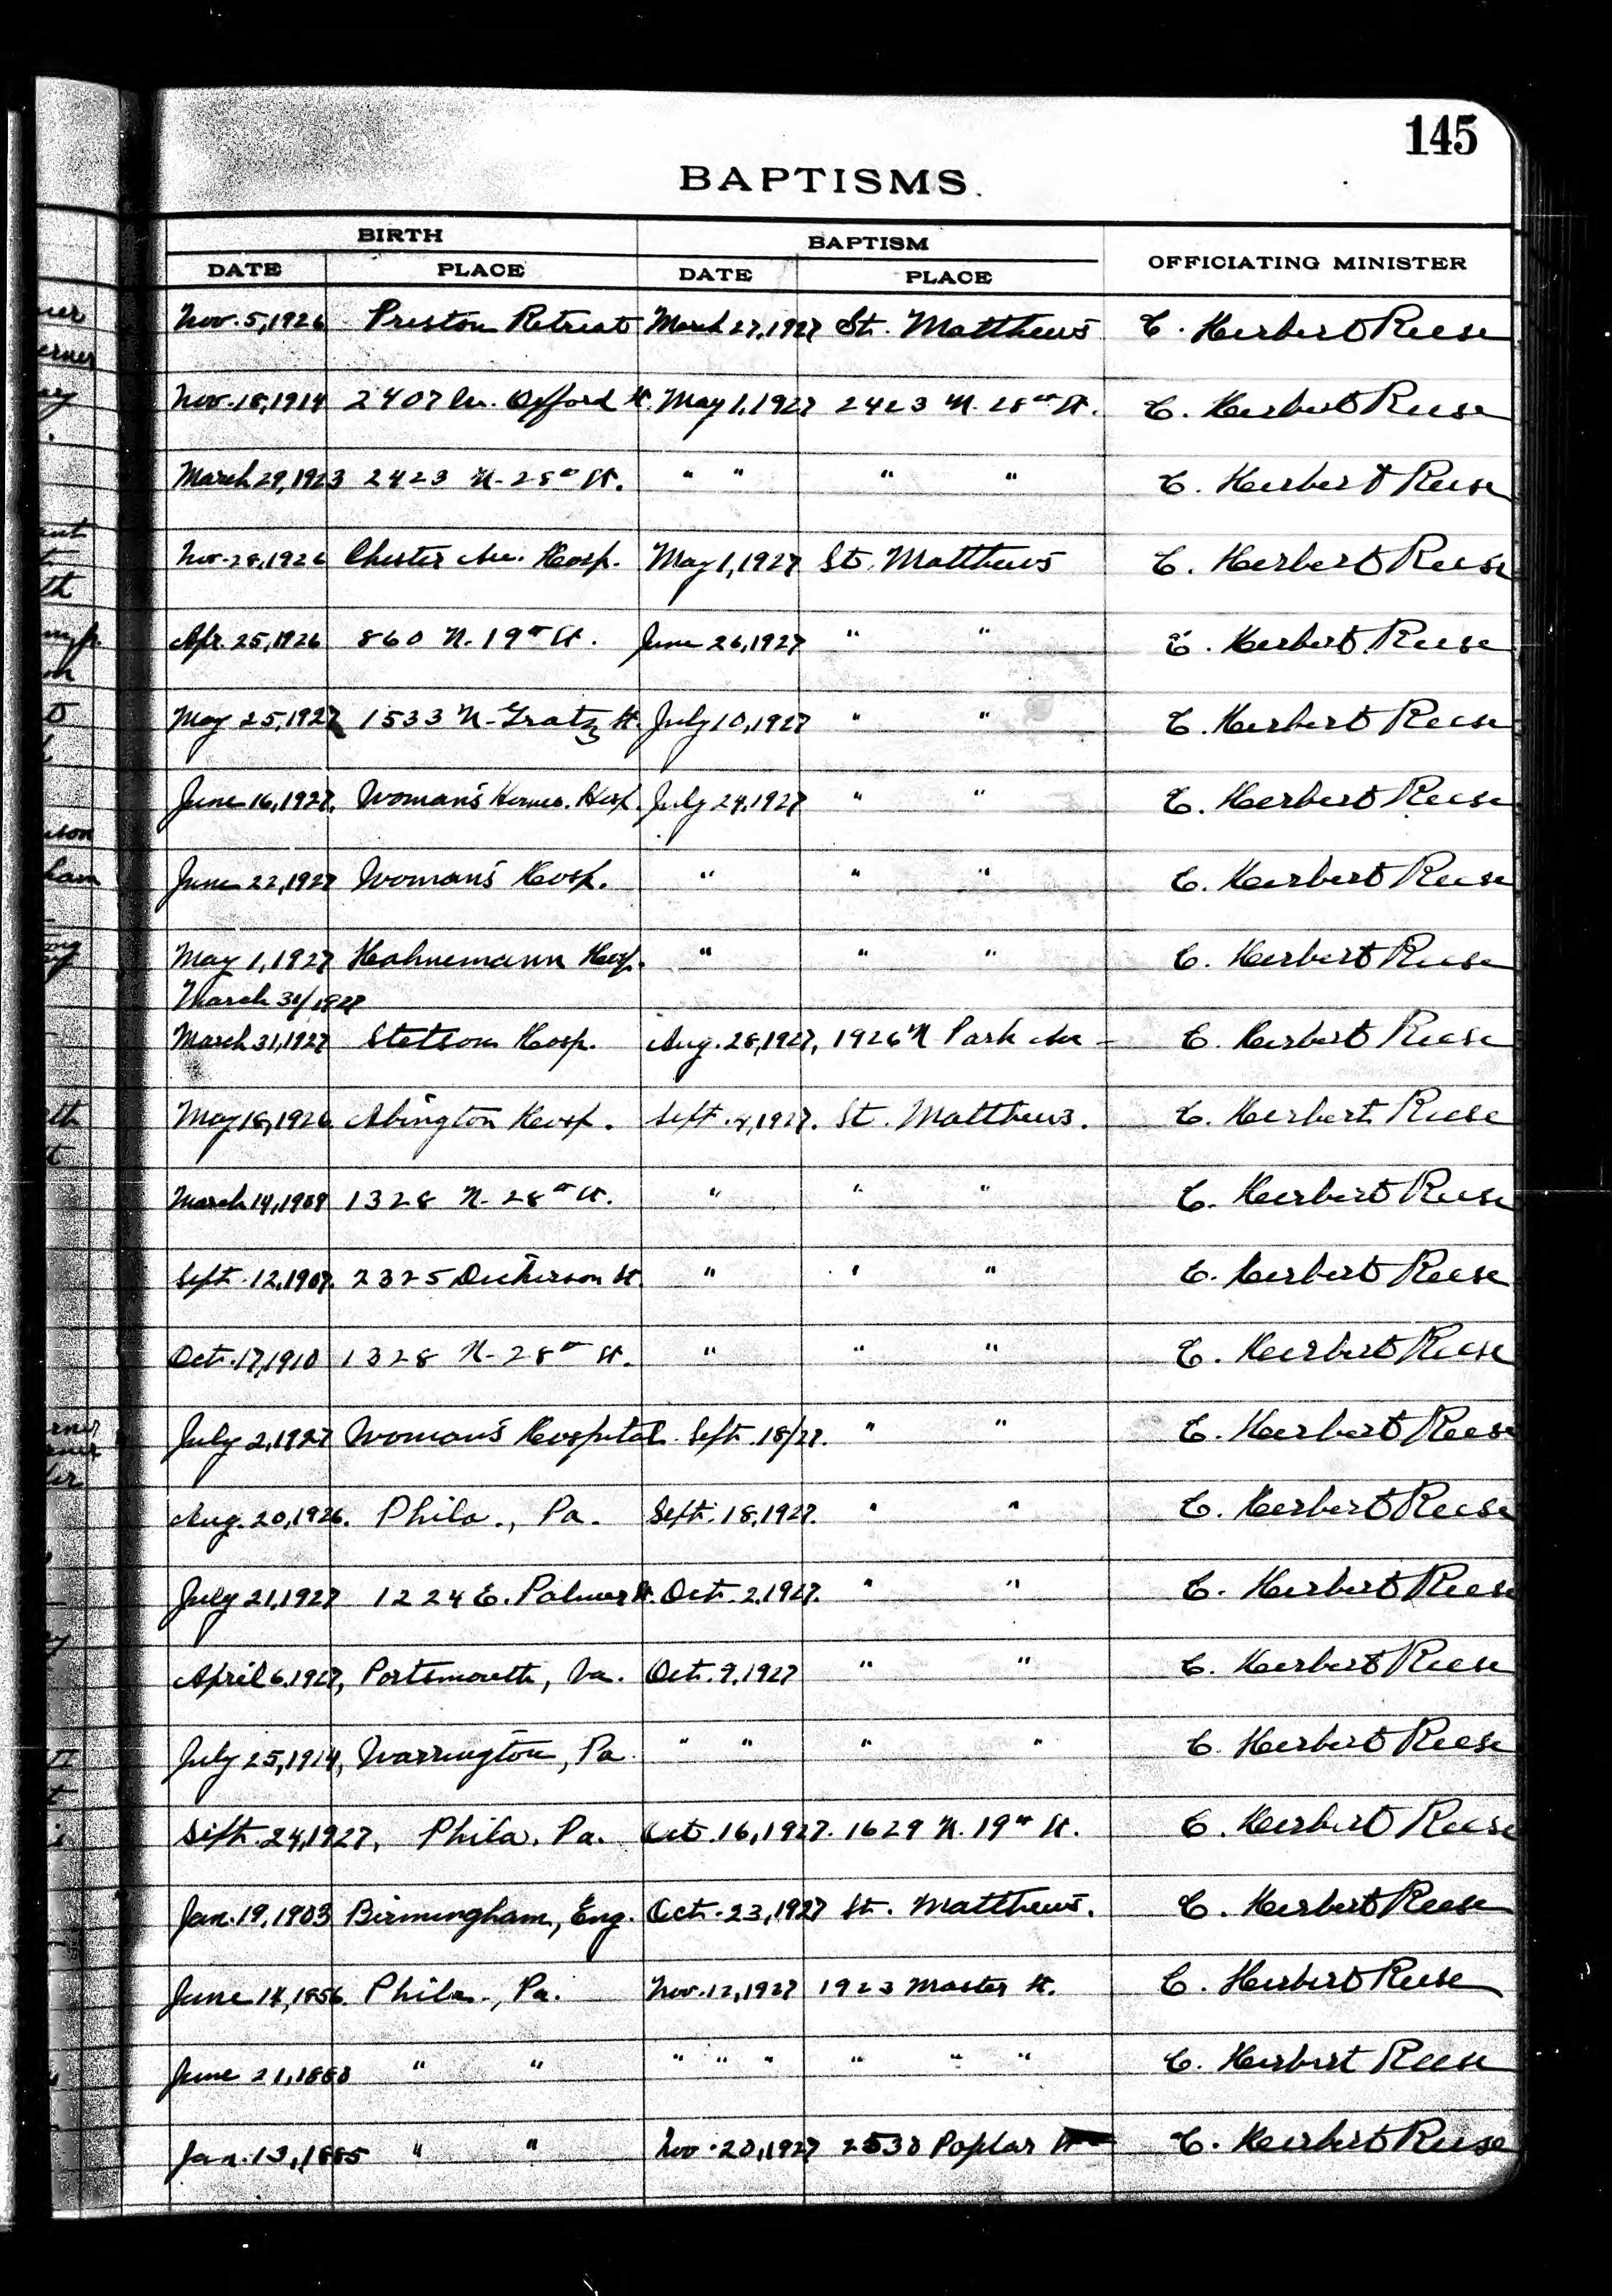 145
BAPTISMS.
BIRTH BAPTISM OFFICIATING MINISTER
DATE PLACE DATE PLACE
Nov. 5, 1926 Preston Retreat March 27, 1927 St. Matthews E. Herbert Reese
Nov. 18, 1914 2407 W. Oxford St. May 1, 1927 2423 N. 28th St. E. Herbert Reese
March 29, 1923 2423 N. 28th St. " " " " E. Herbert Reese
Nov. 28, 1926 Chester Ave. Hosp. May 1, 1927 St. Matthews E. Herbert Reese
Apr. 25, 1926 860 N. 19th St. June 26, 1927 " " E. Herbert Reese
May 25, 1927 1533 N. Gratz St. July 10, 1927 " " E. Herbert Reese
June 16, 1927. Woman's Homeo. Hosp. July 24, 1927 " " E. Herbert Reese
June 22, 1927 Woman's Hosp. " " " E. Herbert Reese
May 1, 1927 Hahnemann Hosp. " " " E. Herbert Reese
March 31/1927
March 31, 1927 Stetson Hosp. Aug. 28, 1927, 1926 N Park Ave - E. Herbert Reese
May 18, 1926 Abington Hosp. Sept. 4, 1927. St. Matthews. E. Herbert Reese
March 14, 1909 1328 N. 28th St. " " " E. Herbert Reese
Sept. 12, 1907. 2325 Dickerson St. " " " E. Herbert Reese
Oct. 17, 1910 1328 N. 28th St. " " " E. Herbert Reese
July 2, 1927 Woman's Hospital. Sept. 18/27. " " E. Herbert Reese
Aug. 20, 1926. Phila., Pa. Sept. 18, 1927. " " E. Herbert Reese
July 21, 1927 1224 E. Palmer St. Oct. 2, 1927. " " E. Herbert Reese
April 6, 1927, Portsmouth, Va. Oct. 9, 1927 " " E. Herbert Reese
July 25, 1914, Warrington, Pa. " " " " E. Herbert Reese
Sept. 24, 1927, Phila. Pa. Oct. 16, 1927. 1629 N. 19th St. E. Herbert Reese
Jan. 19, 1903 Birmingham, Eng. Oct. 23, 1927 St. Matthews. E. Herbert Reese
June 14, 1856. Phila., Pa. Nov. 12, 1927 1923 Master St. E. Herbert Reese
June 21, 1860 " " " " " " " " E. Herbert Reese
Jan. 13, 1885 " " Nov. 20, 1927 2530 Poplar St E. Herbert Reese